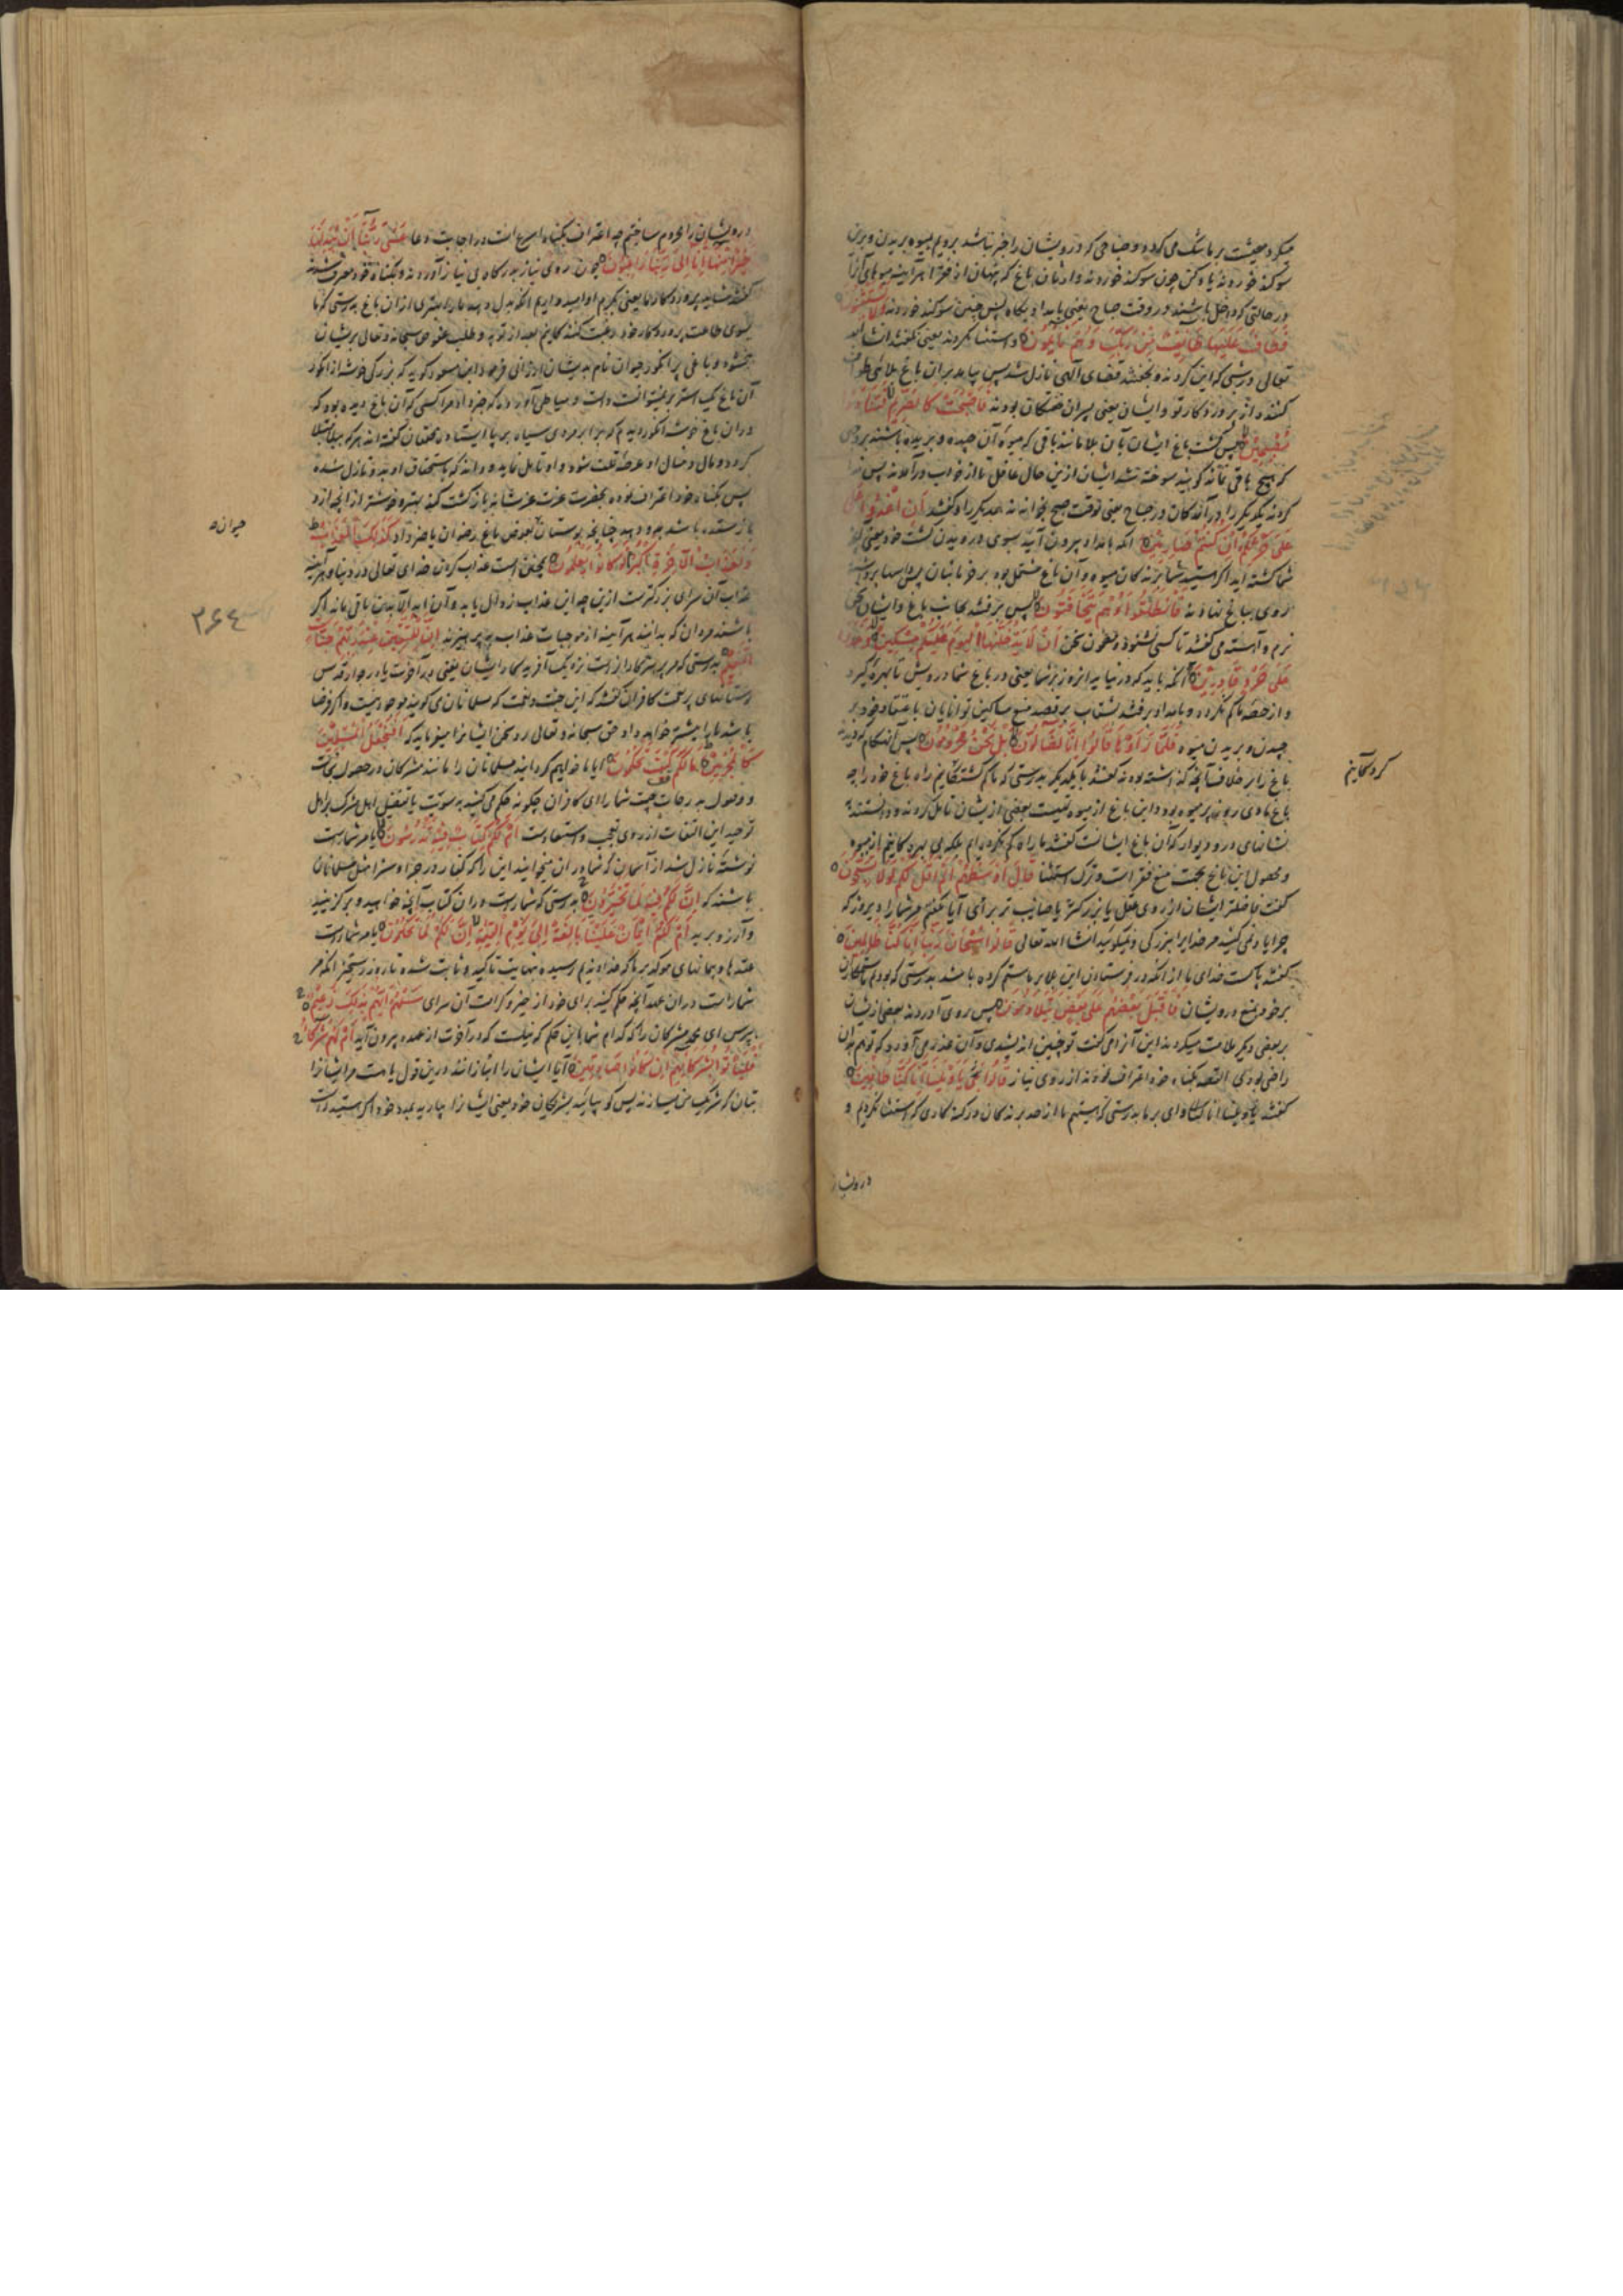 میکرد معیشت بر ما تنک می کردد و صباحی که درویشان را خبر نباشد برویم میوه بریدن و برین
سوکند خوردند یاد کن چون سوکند خوردند وارثان باغ که پنهان از فقرا هرآینه میوهای آنرا
در حالتی که داخل باشند در وقت صباح یعنی بامداد پکاه پس چنین سوکند خوردند وَلَا يَسْتَثْنُونَ
فَطَافَ عَلَيْهَا طَائِفٌ مِنْ رَبِّكَ وَهُمْ نَائِمُونَ و استثنا نکردند یعنی نکفتند ان شا الله
تعالی و شبی که این کردند و بخفتند قضای الهی نازل شد پس پیامد بران باغ بلائی طواف
کننده از پروردکار تو و ایشان یعنی پسران خفتکان بودند فَأَصْبَحَتْ كَالصَّرِيمِ فَتَنَادَوْا
مُصْبِحِينَ پس کشت باغ ایشان بآن بلا مانند باقی که میوه آن چیده و بریده باشند بروجهی
که هیچ باقی نماند کویند سوخته شد ایشان ازین حال غافل تا از خواب درآمدند پس ندا
کردند یکدیکر را درآیندکان در صباح یعنی بوقت صبح بخواندند یکدیکر را و کفتند أَنِ اغْدُوا عَلَى
عَلَى حَرْثِكُمْ إِنْ كُنْتُمْ صَارِمِينَ انکه بامداد بیرون آیید بسوی درویدن کشت خود یعنی
شما کشته اید اکر هستید شما برندکان میوه و آن باغ مشتمل بود بر خرمابنان پس اسپها
روی بباغ نهادند فَانْطَلَقُوا وَهُمْ يَتَخَافَتُونَ پس برفتند بجانب باغ و ایشان سخن
نرم و آهسته می کفتند تا کسی نشنود و مضمون سخن أَنْ لَا يَدْخُلَنَّهَا الْيَوْمَ عَلَيْكُمْ مِسْكِينٌ وَغَدَوْا
عَلَى حَرْدٍ قَادِرِينَ انکه باید که در نیاید امروز بر شما یعنی در باغ شما درویش تا بهره کیرد
و از حصه ما کم نکردد و بامداد برفتند بشتاب بر قصد منع مساکین توانایان باعتقاد خود بر
چیدن و بریدن میوه فَلَمَّا رَأَوْهَا قَالُوا إِنَّا لَضَالُّونَ بَلْ نَحْنُ مَحْرُومُونَ پس آنهنکام که دیدند
باغ را برخلاف آنچه کذاشته بودند کفتند با یکدیکر بدرستی که ما کم کشتکانیم راه باغ خود را چه
باغ ما دی روز پر میوه بود و این باغ از میوه تهیست بعضی ازیشان تامل کردند و دانستند
نشانهای در و دیوار که آن باغ ایشانست کفتند ما راه کم نکرده ایم بلکه بی بهره کانیم از میوه
و محصول این باغ بجهت منع فقرا است و ترک استثنا قَالَ أَوْسَطُهُمْ أَلَمْ أَقُلْ لَكُمْ لَوْلَا تُسَبِّحُونَ
کفت فاضلتر ایشان از روی عقل یا بزرکتر یا صایب تر برأی آیا نکفتم مر شما را دیروز که
چرا یاد نمی کنید مر خدایرا ببزرکی و نمیکویید ان شا الله تعالی قَالُوا سُبْحَانَ رَبِّنَا إِنَّا كُنَّا ظَالِمِينَ
کفتند پاکست خدای ما از آنکه در فرستادن این بلا بر ما ستم کرده باشد بدرستی که بودیم ما ستمکاران
بر خود بمنع درویشان فَأَقْبَلَ بَعْضُهُمْ عَلَى بَعْضٍ يَتَلَاوَمُونَ پس روی آوردند بعضی ازیشان
بر بعضی دیکر ملامت میکردند این آنرا می کفت تو چنین اندیشیدی و آن عذر می آورد که تو هم بدان
راضی بودی القصه بکناه خود اعتراف نموده از روی نیاز قَالُوا يَا وَيْلَنَا إِنَّا كُنَّا طَاغِينَ
کفتند یا ویلنا انا کنا وای بر ما بدرستی که هستیم ما از حد برندکان در کنه کاری که استثنا نکردیم و
کردکانیم
درویشان
درویشان را محروم ساختیم چه اعتراف بکناه اسرع است در اجابت دعا عَسَى رَبُّنَا أَنْ يُبْدِلَنَا
خَيْرًا مِنْهَا إِنَّا إِلَى رَبِّنَا رَاغِبُونَ چون روی نیاز بدرکاه بی نیاز آوردند و بکناه خود معترف شدند
کفتند شاید پروردکار ما یعنی بکرم او امیدواریم انکه بدل دهد ما را بهتری ازان باغ بدرستی که ما
بسوی طاعت پروردکار خود رغبت کنندکانیم بعد از توبه و طلب عفو حق سبحانه و تعالی بریشان
ببخشود و باغی پر انکور حیوان نام بدیشان ارزانی فرمود ابن مسعود کوید که بزرکی خوشه از انکور
آن باغ یک استر بر نمیتوانست داشت و میاطی آورده که خبر داد مرا کسی که آن باغ دیده بود که
دران باغ خوشه انکور دیدم که برابر مردی سیاه برپا ایستاده محققان کفته اند هر که ببلا مبتلا
کردد و مال و منال او عرضه تلف شود و او تامل نماید و داند که باستحقاق او بدو نازل شده
پس بکناه خود اعتراف نموده بحضرت عزت عز شانه بازکشت کند بهتر و خوشتر از آنچه ازو
بازستده باشد بدو دهد چنانچه بوستان بعوض باغ رضوان باضراد داد كَذَلِكَ الْعَذَابُ
وَلَعَذَابُ الْآخِرَةِ أَكْبَرُ لَوْ كَانُوا يَعْلَمُونَ همچنین است عذاب کردن خدای تعالی در دنیا و هرآینه
عذاب آن سرای بزرکترست ازین چه این عذاب زوال یابد و آن ابد الآباد باقی ماند اکر
باشند مردان که بدانند هرآینه از موجبات عذاب بپرهیزند إِنَّ لِلْمُتَّقِينَ عِنْدَ رَبِّهِمْ جَنَّاتِ
النَّعِيمِ بدرستی که مر پرهیزکارانراست نزدیک آفریدکار ایشان یعنی در آخرت یا در جوار قدس
بوستانهای پر نعمت کافران کفتند که این جنت و نعمت که مسلمانان می کویند موجود نیست و اکر فرضا
باشد ما را بیشتر خواهد داد حق سبحانه و تعالی رد سخن ایشانرا میفرماید که أَفَنَجْعَلُ الْمُسْلِمِينَ
كَالْمُجْرِمِينَ مَا لَكُمْ كَيْفَ تَحْكُمُونَ ایا ما خواهیم کردانید مسلمانان را مانند مشرکان در حصول نجات
و وصول بدرجات چیست شما را ای کافران چکونه حکم می کنید بسویت یا بتفضیل اهل شرک بر اهل
توحید این التفات از روی تعجب و استبعادست أَمْ لَكُمْ كِتَابٌ فِيهِ تَدْرُسُونَ آیا مر شماراست
نوشته نازل شده از آسمان که شما دران میخوانید این را که کفار در جزا و سزا مثل مسلمانان
باشند که إِنَّ لَكُمْ فِيهِ لَمَا تَخَيَّرُونَ بدرستی که شماراست دران کتاب آنچه خواهید و برکزینید
و آرزو برید أَمْ لَكُمْ أَيْمَانٌ عَلَيْنَا بَالِغَةٌ إِلَى يَوْمِ الْقِيَامَةِ إِنَّ لَكُمْ لَمَا تَحْكُمُونَ یا مر شماراست
عقدها و پیمانهای موکد بر ما که خداوندیم رسیده نهایت تاکید و ثابت شده تا روز رستخیز انکه مر
شماراست دران عهد آنچه حکم کنید برای خود از خیر و کرامت آن سرای سَلْهُمْ أَيُّهُمْ بِذَلِكَ زَعِيمٌ
بپرس ای محمد مشرکان را که کدام شما باین حکم کفیلست که در آخرت از عهده بیرون آید أَمْ لَهُمْ شُرَكَاءُ
فَلْيَأْتُوا بِشُرَكَائِهِمْ إِنْ كَانُوا صَادِقِينَ آیا ایشان را انبازانند درین قول یا هست مر ایشانرا
بتان که شریک من میسازند پس کو بیائید بشریکان خود یعنی ایشانرا بیارید بمدد خود اکر هستید راست
حیوان
۳۶۴